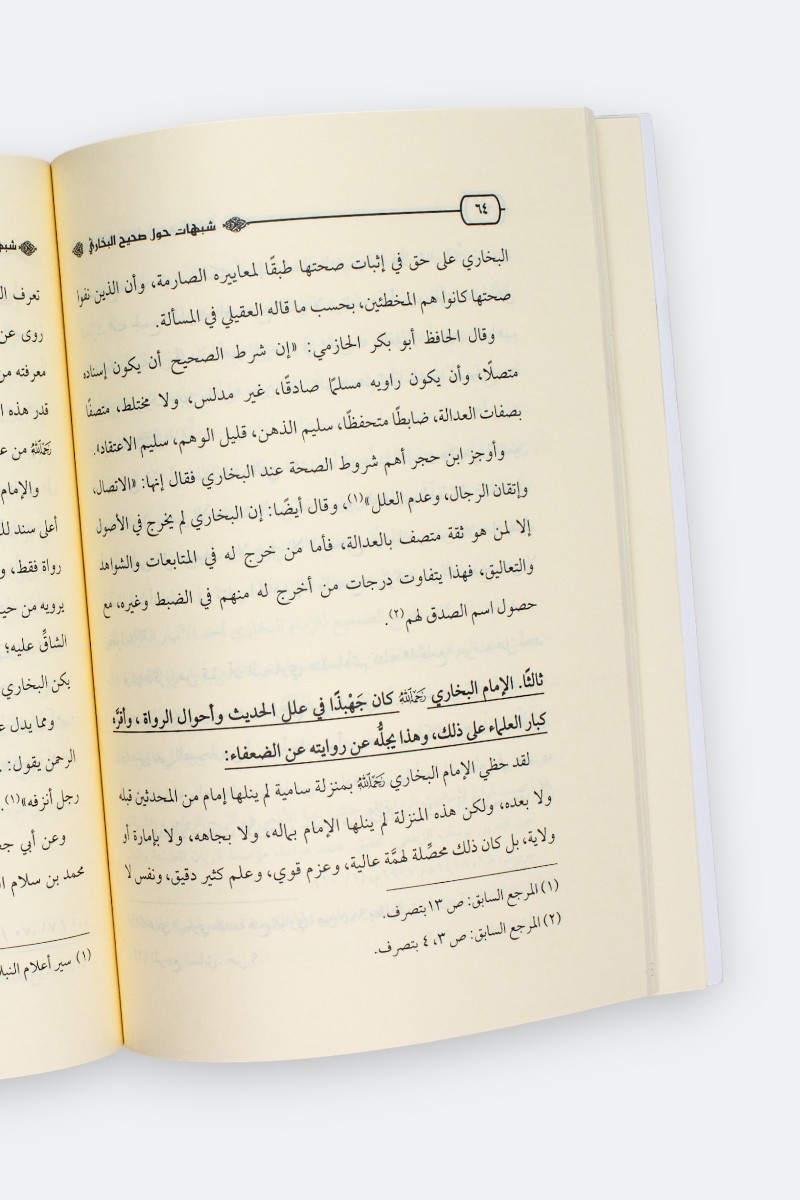 ٦٤
شبهات حول صحيح البخاري
البخاري على حق في إثبات صحتها طبقًا لمعاييره الصارمة، وأن الذين نفوا
صحتها كانوا هم المخطئين، بحسب ما قاله العقيلي في المسألة.
وقال الحافظ أبو بكر الحازمي: «إن شرط الصحيح أن يكون إسناده
متصلًا، وأن يكون راويه مسلمًا صادقًا، غير مدلس، ولا مختلط، متصفًا
بصفات العدالة، ضابطًا متحفظًا، سليم الذهن، قليل الوهم، سليم الاعتقاد».
وأوجز ابن حجر أهم شروط الصحة عند البخاري فقال إنها: «الاتصال،
وإتقان الرجال، وعدم العلل»(١)، وقال أيضًا: إن البخاري لم يخرج في الأصول
إلا لمن هو ثقة متصف بالعدالة، فأما من خرج له في المتابعات والشواهد
والتعاليق، فهذا يتفاوت درجات من أخرج له منهم في الضبط وغيره، مع
حصول اسم الصدق لهم(٢).
ثالثًا. الإمام البخاري رَحِمَهُ اللَّهُ كان جَهْبذًا في علل الحديث وأحوال الرواة ، وأقرَّه
كبار العلماء على ذلك، وهذا يجلُّه عن روايته عن الضعفاء:
لقد حظي الإمام البخاري رَحِمَهُ اللَّهُ بمنزلة سامية لم ينلها إمام من المحدثين قبله
ولا بعده، ولكن هذه المنزلة لم ينلها الإمام بماله، ولا بجاهه، ولا بإمارة أو
ولاية، بل كان ذلك محصِّلة لهمَّة عالية، وعزم قوي، وعلم كثير دقيق، ونفس لا
(١) المرجع السابق: ص ١٣ بتصرف.
(٢) المرجع السابق: ص ٣، ٤ بتصرف.
تعرف
روى عن
معرفته من
قدر هذه
رَحِمَهُ اللَّهُ من
والإمام
أعلى سند
رواة فقط، و
يرويه من
الشاقِّ عليه؛
يكن البخاري
ومما يدل
الرحمن يقول:
رجل أنزفه»(١).
وعن أبي
محمد بن سلام
(١) سير أعلام